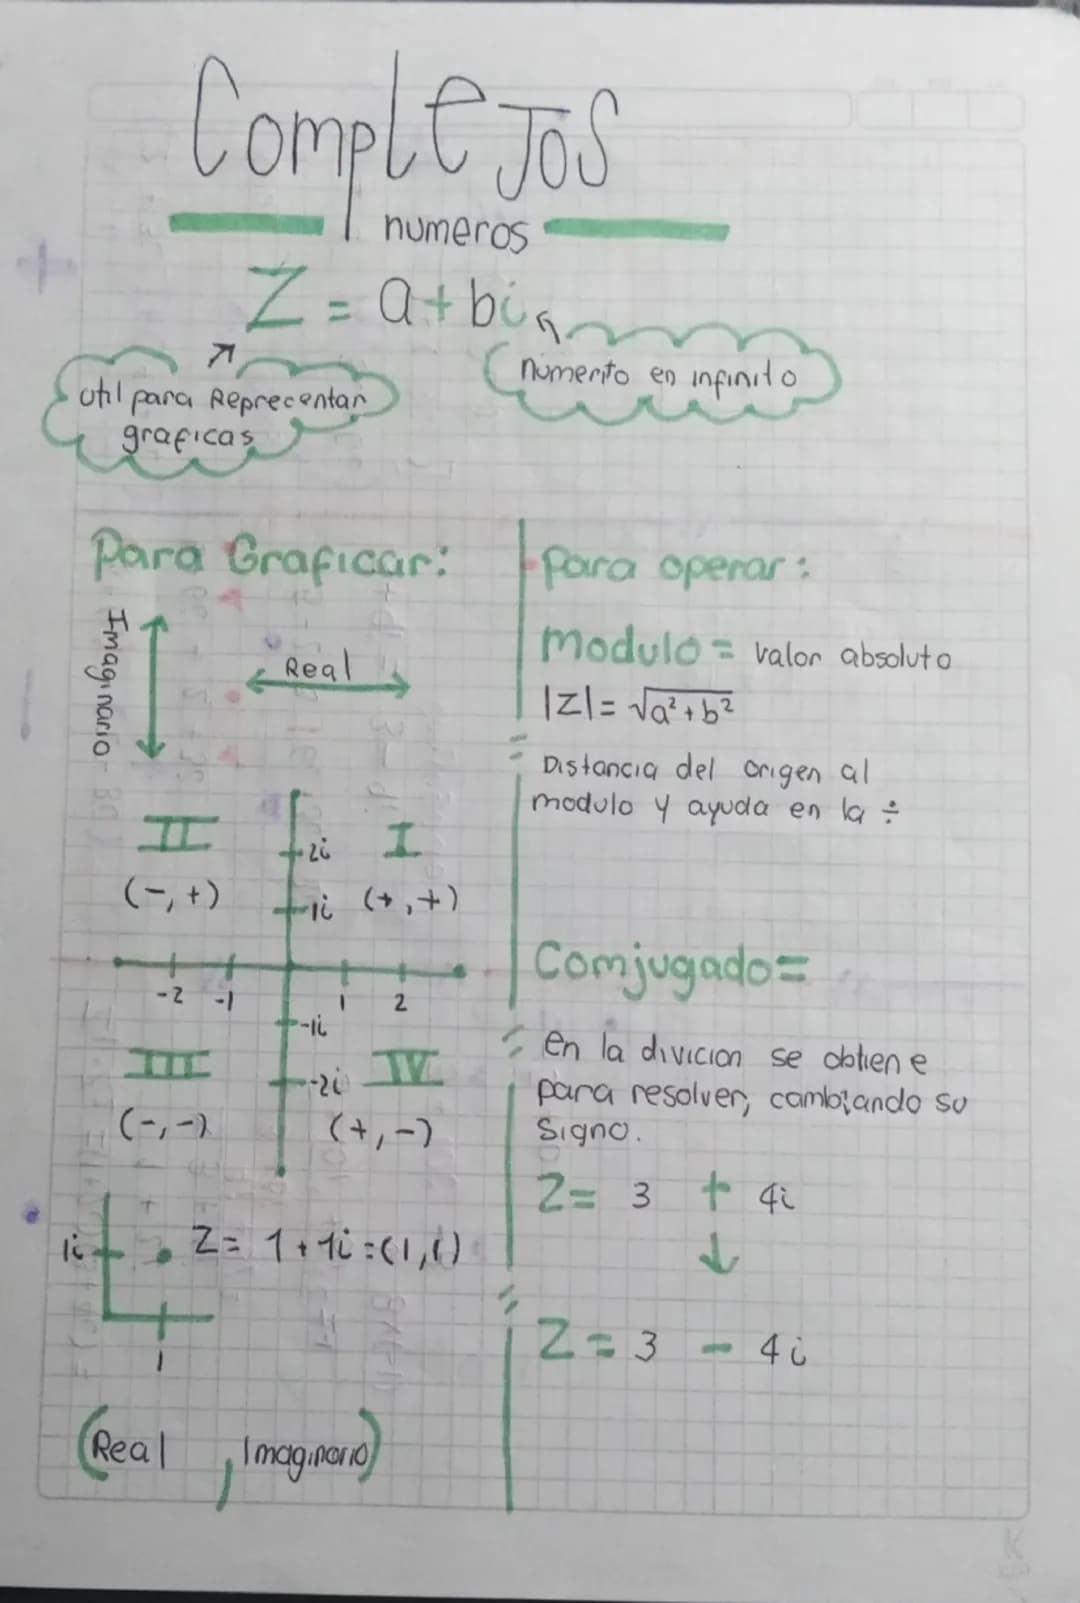 Complejos
numeros
Z = a + bi
util para Reprecentar
graficas
numerito en infinito
Para Graficar:
Imaginario
Real
II
I
(-,+)
(+,+)
2i
1i
-2 -1 1 2
-1i
-2i
III
IV
(-,-)
(+,-)
1i
Z= 1+1i=(1,1)
1
(Real , Imaginario)
Para operar:
Modulo = valor absoluto
|Z|= √a²+b²
Distancia del origen al
modulo y ayuda en la ÷
Comjugado=
en la divicion se obtiene
para resolver, cambiando su
signo.
Z= 3 + 4i
↓
Z = 3 - 4i